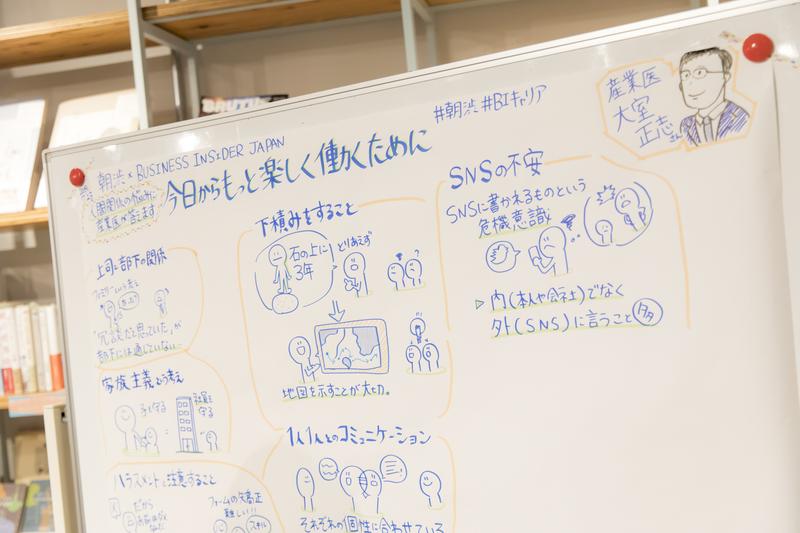 #朝渋 #BIキャリア
産業医
大室
正志さん
朝渋 × BUSINESS INSIDER JAPAN
今日からもっと楽しく働くために
人間関係のお悩みに
産業医が答えます
上司と部下の関係
"冗談だと思っていた"が
部下には通じていない…
家族主義という考え
子を守る
社員を守る
ハラスメントに注意すること
だから
フォームの矯正
難しい!!
スキル
下積みをすること
石の上に
3年
とりあえず
地図を示すことが大切。
1人1人とのコミュニケーション
それぞれの個性に合わせている
SNSの不安
SNSに書かれるものという
危機意識
▷ 内(本人や会社)でなく
外(SNS)に言うこと多